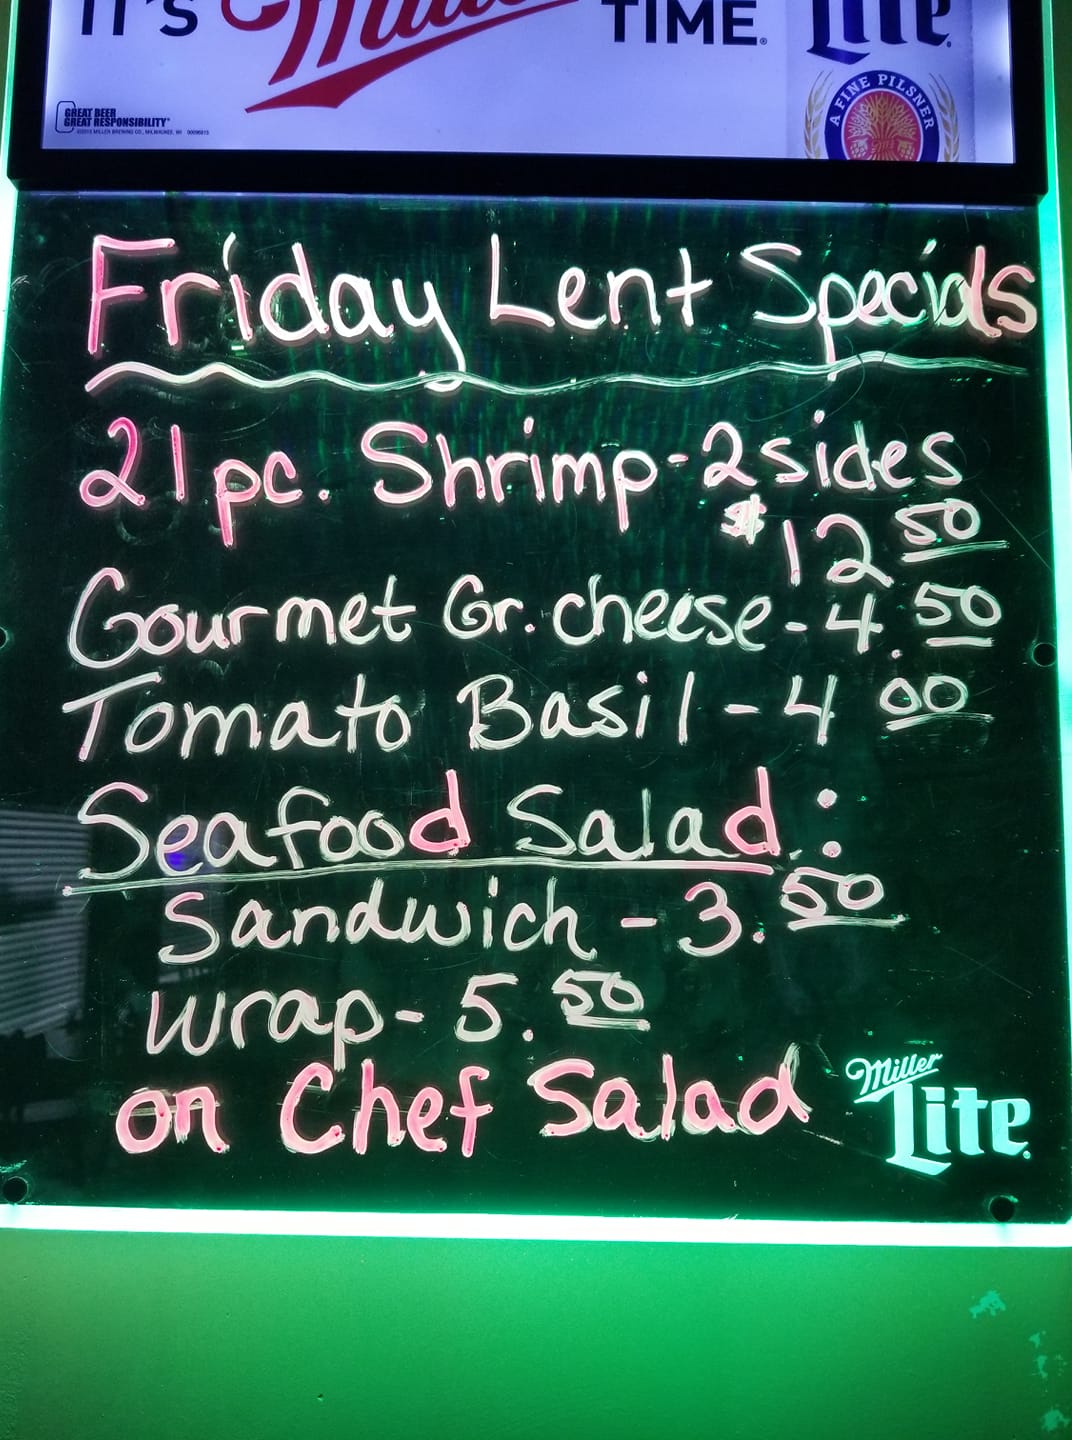 IT'S Miller TIME.
Lite
A FINE PILSNER
GREAT BEER
GREAT RESPONSIBILITY®
Friday Lent Specials
21 pc. Shrimp - 2 sides
$12 50
Gourmet Gr. cheese - 4.50
Tomato Basil - 4 00
Seafood Salad:
Sandwich - 3.50
Wrap - 5.50
on Chef Salad
Miller
Lite